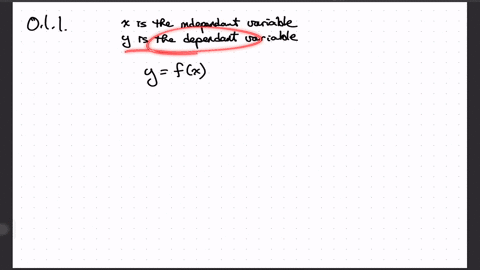 0.1.1.
x is the independant variable
y is the dependant variable
y = f(x)